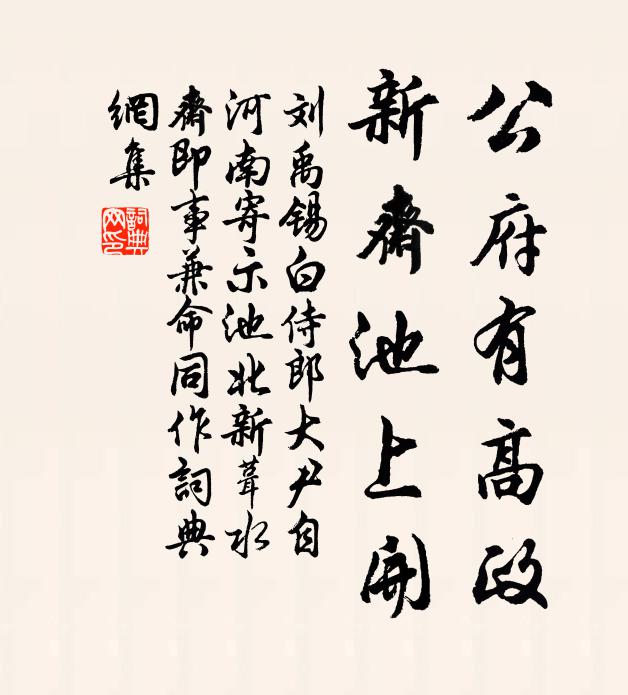 公府有高政
新齋池上開
刘禹锡白侍郎大尹自
河南寄示池北新葺水
齋即事兼命同作詞典
網集
詞典網印